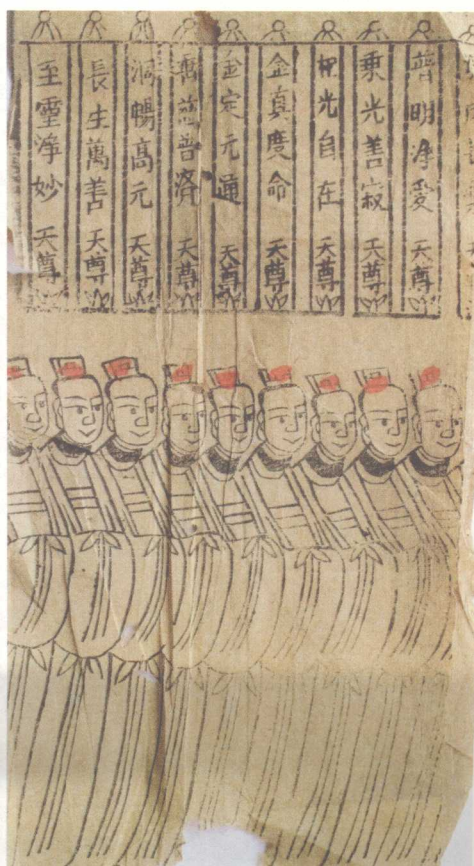 齊明淨愛 天尊
乘光善寂 天尊
光自在 天尊
金真度命 天尊
金定元 天尊
慈普濟 天尊
洞暢高元 天尊
長生萬善 天尊
至靈淨妙 天尊